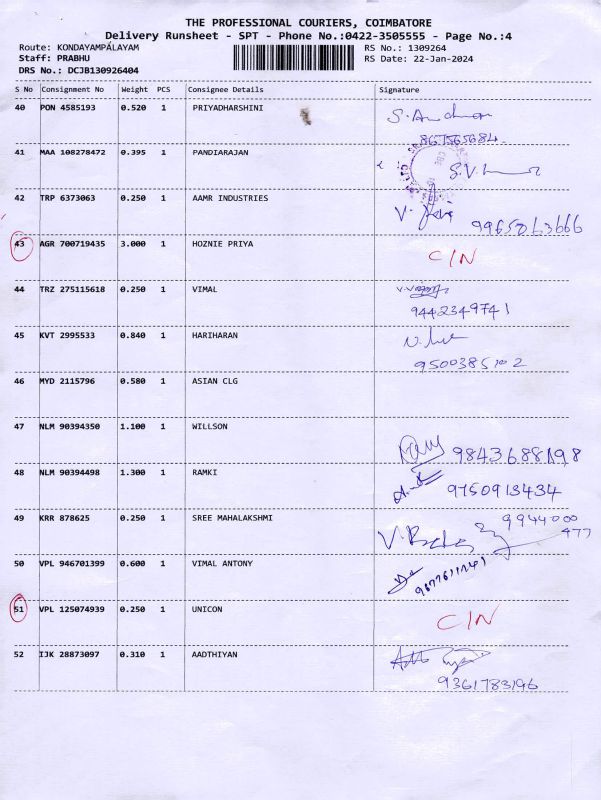 THE PROFESSIONAL COURIERS, COIMBATORE
Delivery Runsheet - SPT - Phone No.:0422-3505555 - Page No.:4
Route: KONDAYAMPALAYAM
RS No.: 1309264
Staff: PRABHU
RS Date: 22-Jan-2024
DRS No.: DCJB130926404
S No Consignment No Weight PCS Consignee Details Signature
40 PON 4585193 0.520 1 PRIYADHARSHINI
41 MAA 108278472 0.395 1 PANDIARAJAN
42 TRP 6373063 0.250 1 AAMR INDUSTRIES
43 AGR 700719435 3.000 1 HOZNIE PRIYA C/N
44 TRZ 275115618 0.250 1 VIMAL
9442349741
45 KVT 2995533 0.840 1 HARIHARAN
46 MYD 2115796 0.580 1 ASIAN CLG
47 NLM 90394350 1.100 1 WILLSON
48 NLM 90394498 1.300 1 RAMKI
9750913434
49 KRR 878625 0.250 1 SREE MAHALAKSHMI
9944000
477
50 VPL 946701399 0.600 1 VIMAL ANTONY
51 VPL 125074939 0.250 1 UNICON C/N
52 IJK 28873097 0.310 1 AADTHIYAN
9361783196